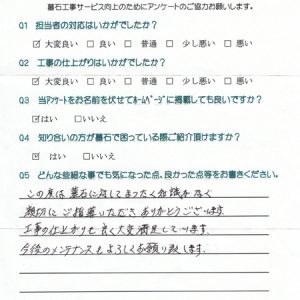 墓石工事サービス向上のためにアンケートのご協力お願いします。
Q1 担当者の対応はいかがでしたか?
☑大変良い □良い □普通 □少し悪い □悪い
Q2 工事の仕上がりはいかがでしたか?
☑大変良い □良い □普通 □少し悪い □悪い
Q3 当アンケートをお名前を伏せてホームページに掲載しても良いですか?
☑はい □いいえ
Q4 知り合いの方が墓石で困っている際ご紹介頂けますか?
☑はい □いいえ
Q5 どんな些細な事でも気になった点、良かった点等をお書きください。
この度は墓石に対してまったく知識がなく
親切にご指導いただきありがとうございます.
工事の仕上がりも良く大変満足しています.
今後のメンテナンスもよろしくお願い致します.